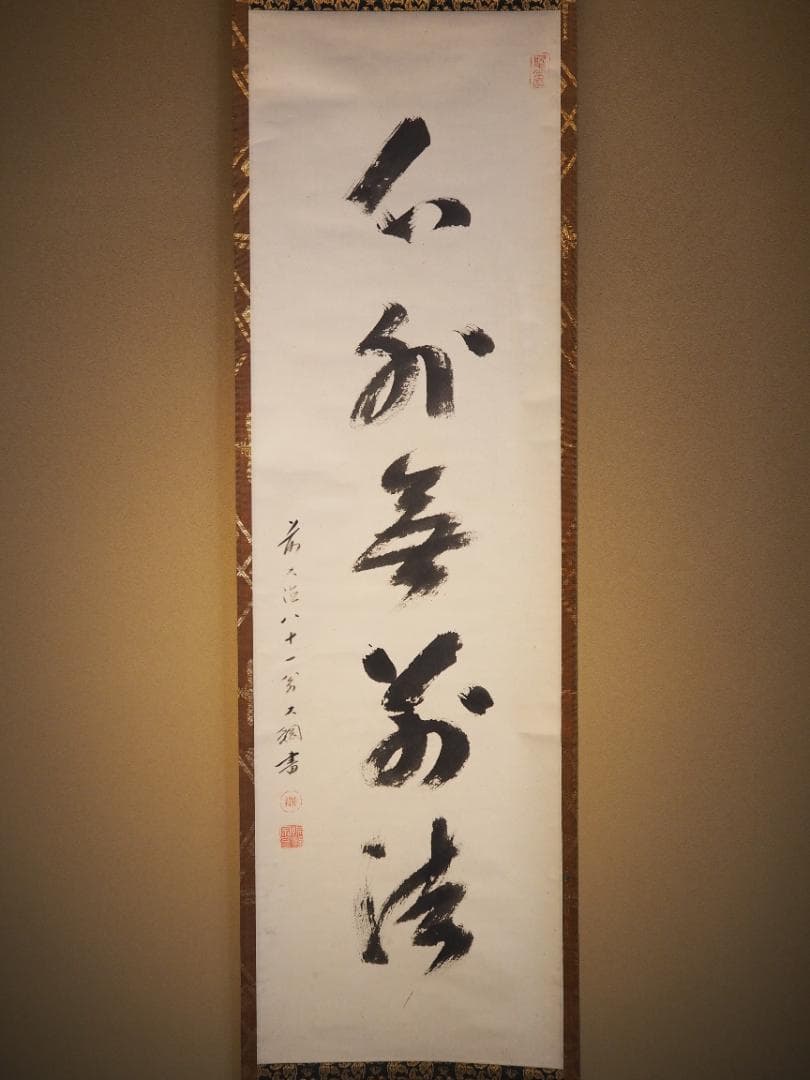 心外無別法
前大徳八十一翁大綱書